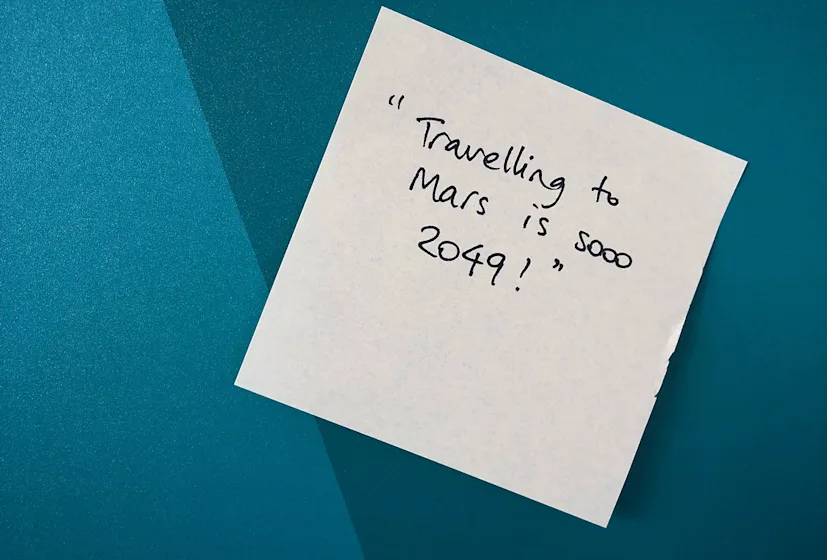 “Travelling to
Mars is sooo
2049!”